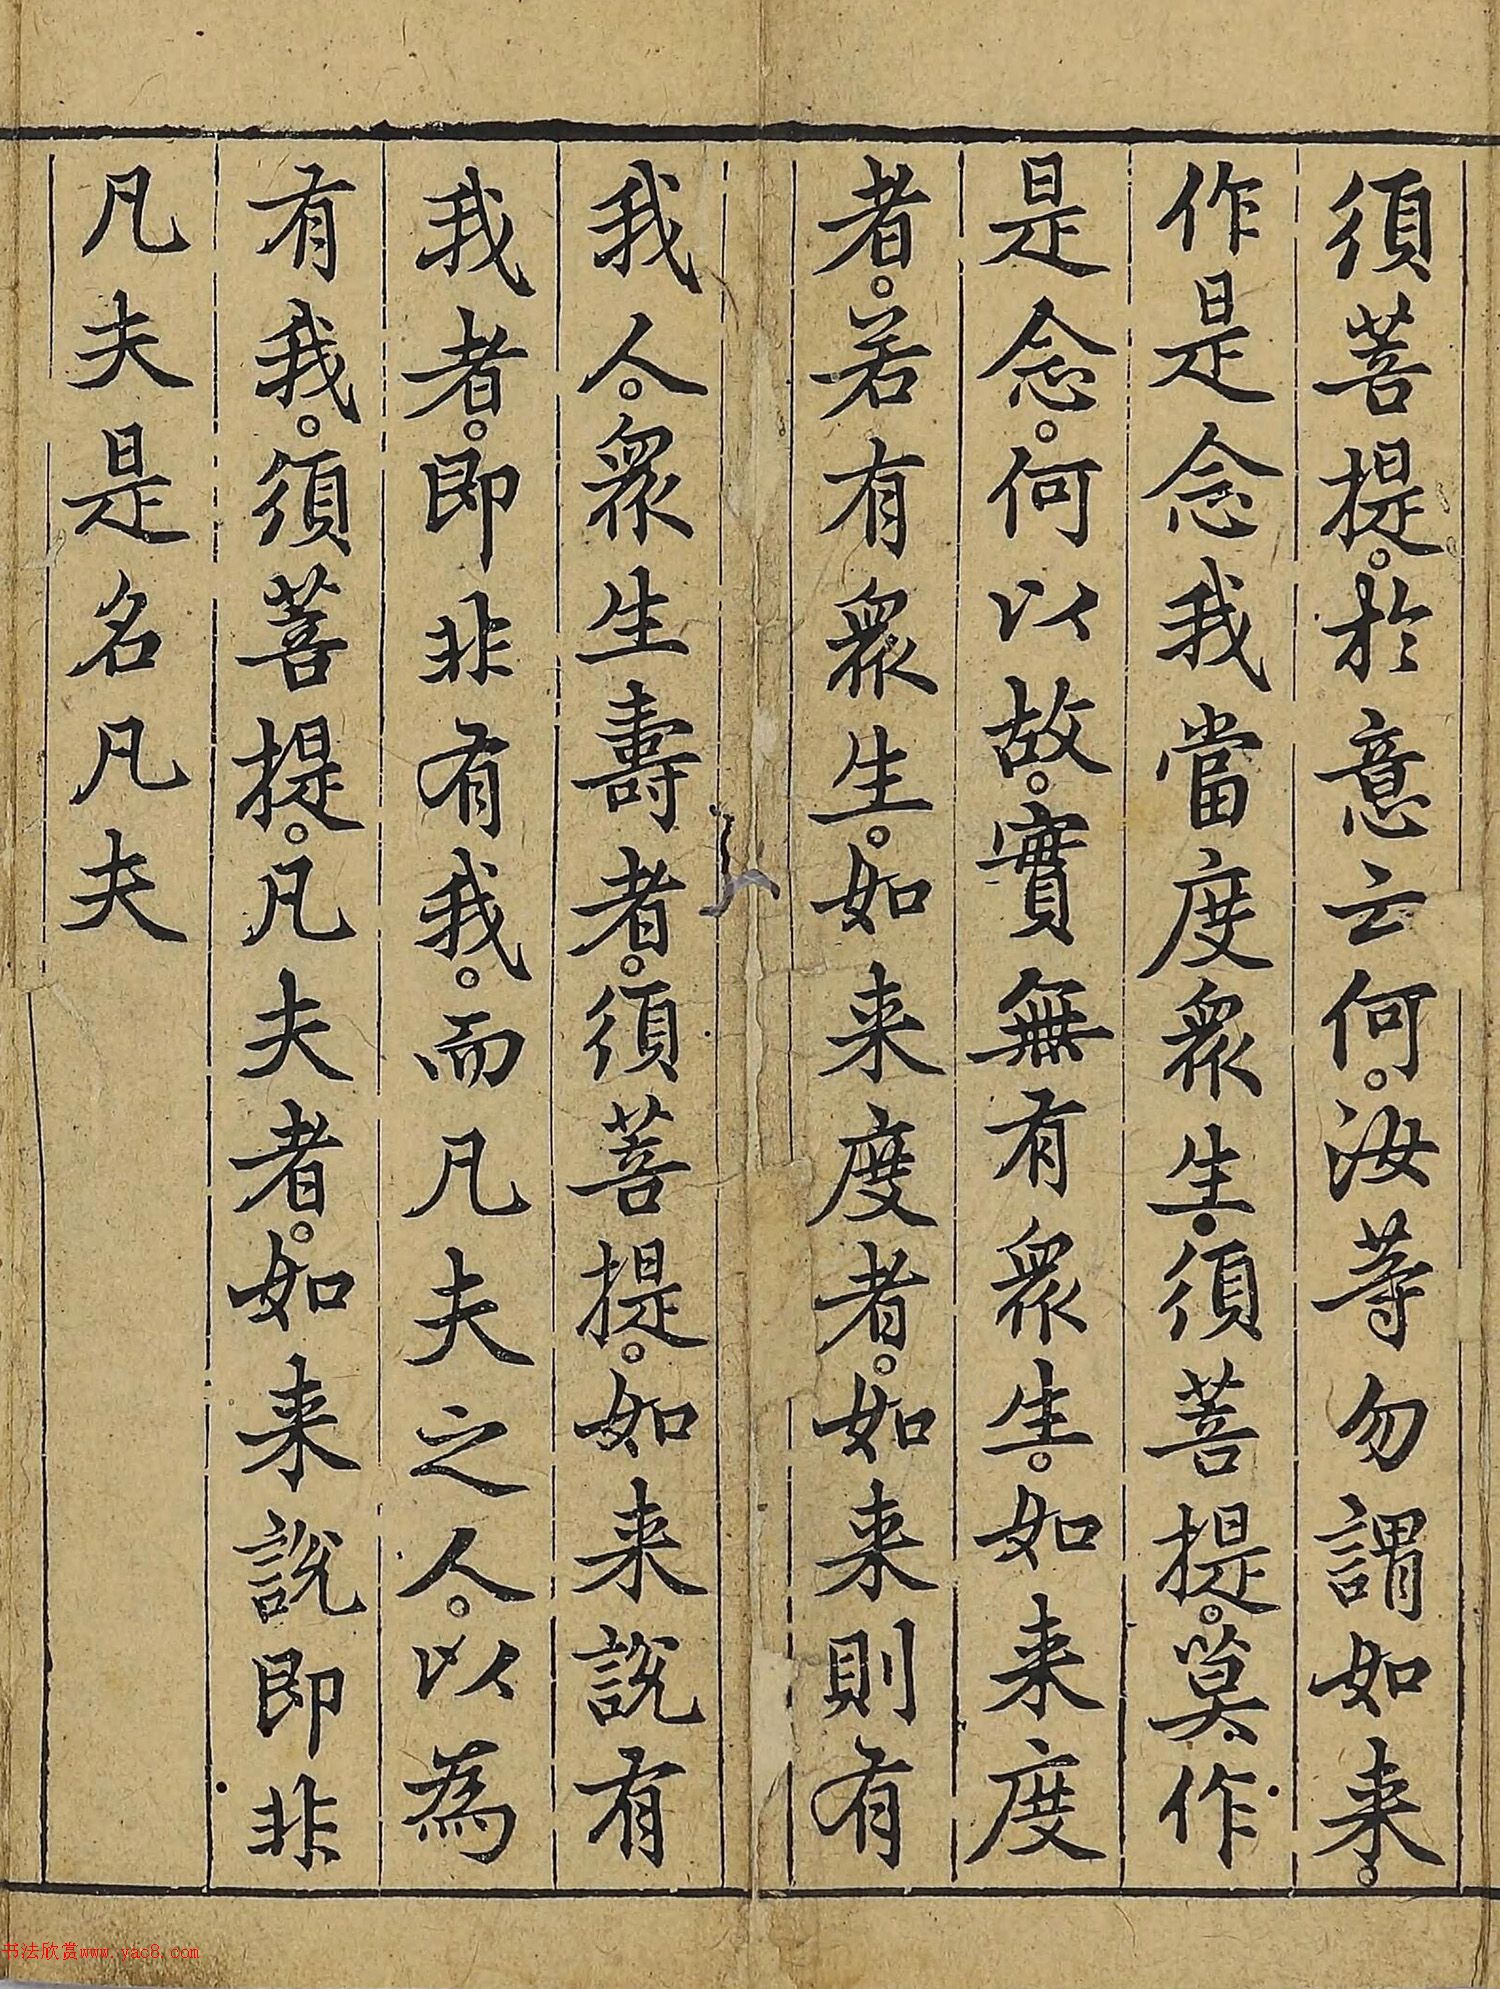 須菩提。於意云何。汝等勿謂如来。
作是念我當度眾生。須菩提。莫作
是念。何以故。實無有眾生。如来度
者。若有眾生。如来度者。如来則有
我人。眾生壽者。須菩提。如来說有
我者。即非有我。而凡夫之人。以為
有我。須菩提。凡夫者。如来說即非
凡夫是名凡夫
书法欣赏www.yac8.com